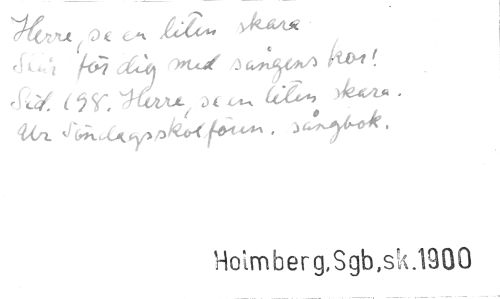 Herre, se en liten skara
Står för dig med sångens kor!
Sid. 198. Herre, se en liten skara.
Ur Söndagsskolfören. sångbok.
Hoimberg,Sgb,sk.1900